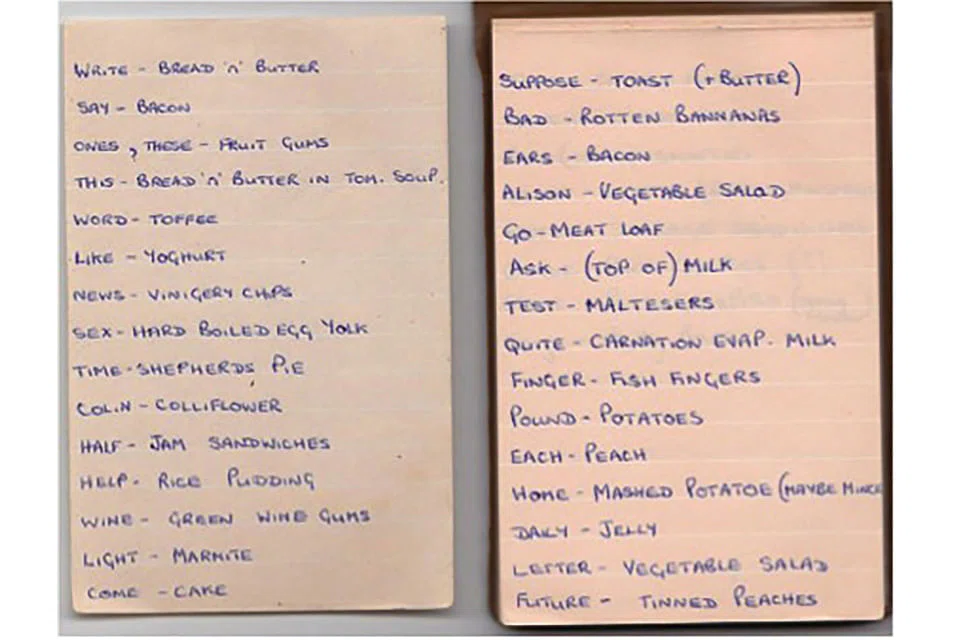 WRITE - BREAD 'N' BUTTER
SAY - BACON
ONES, THESE - FRUIT GUMS
THIS - BREAD 'N' BUTTER IN TOM. SOUP.
WORD - TOFFEE
LIKE - YOGHURT
NEWS - VINIGERY CHIPS
SEX - HARD BOILED EGG YOLK
TIME - SHEPHERDS PIE
COLIN - COLLIFLOWER
HALF - JAM SANDWICHES
HELP - RICE PUDDING
WINE - GREEN WINE GUMS
LIGHT - MARMITE
COME - CAKE
SUPPOSE - TOAST (+ BUTTER)
BAD - ROTTEN BANNANAS
EARS - BACON
ALISON - VEGETABLE SALAD
GO - MEAT LOAF
ASK - (TOP OF) MILK
TEST - MALTESERS
QUITE - CARNATION EVAP. MILK
FINGER - FISH FINGERS
POUND - POTATOES
EACH - PEACH
HOME - MASHED POTATOE (MAYBE MINCE
DAILY - JELLY
LETTER - VEGETABLE SALAD
FUTURE - TINNED PEACHES